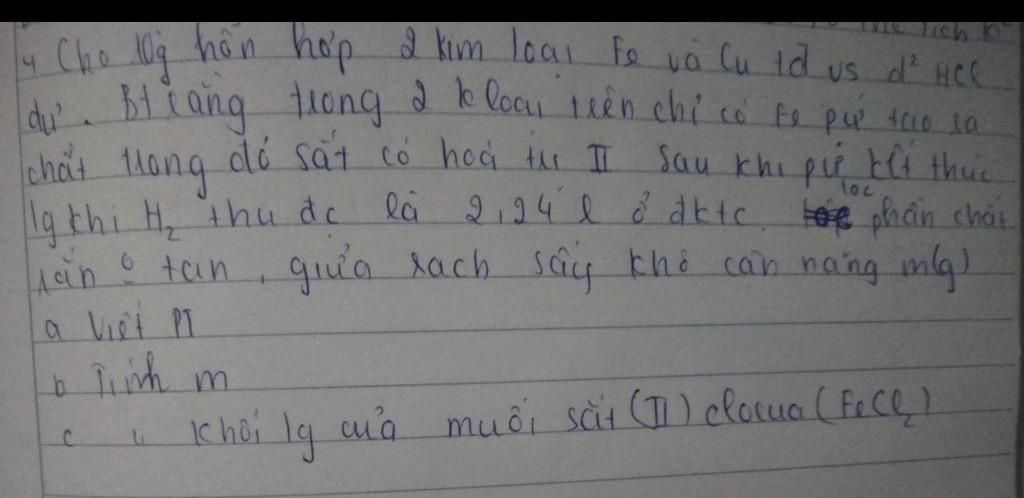 4 Cho 10g hỗn hợp 2 kim loại Fe và Cu td vs d² HCl
dư. Bt rằng trong 2 k loại trên chỉ có Fe pứ tạo ra
chất trong đó sắt có hoá trị II sau khi pứ kết thúc
lg khí H₂ thu đc là 2,24 l ở đktc. lọc phần chất
rắn o tan, giửa sạch sấy khô cân nặng m(g)
a Viết PT
b Tính m
c " khối lg của muối sắt (II) clorua (FeCl₂)